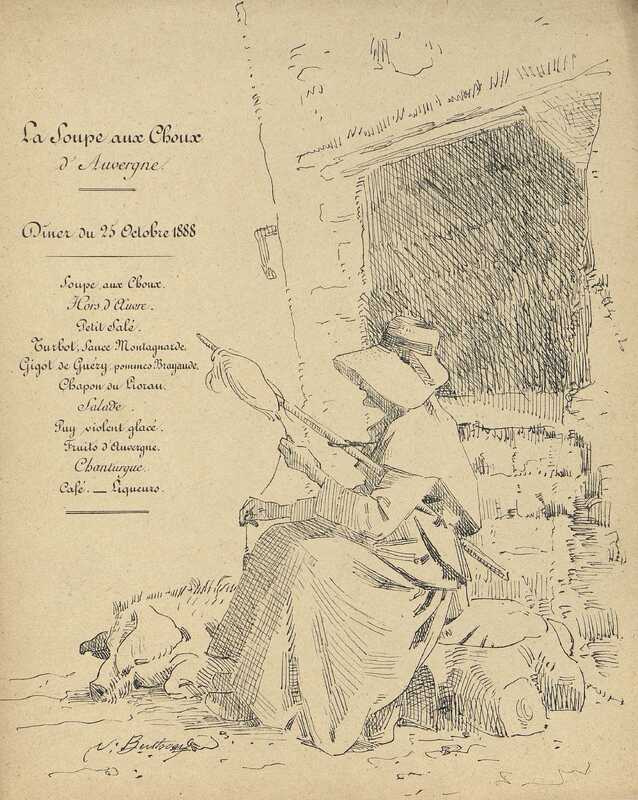 La Soupe aux Choux
d'Auvergne.
Dîner du 25 Octobre 1888
Soupe aux Choux.
Hors d'Œuvre.
Petit Salé.
Turbot, Sauce Montagnarde.
Gigot de Guéry, pommes Brayaude.
Chapon du Lioran.
Salade.
Puy violent glacé.
Fruits d'Auvergne.
Chanturgue.
Café. — Liqueurs.